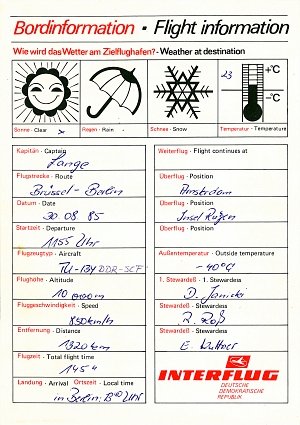 Bordinformation · Flight information
Wie wird das Wetter am Zielflughafen? - Weather at destination
23 +°C
-°C
Sonne · Clear x
Regen · Rain -
Schnee · Snow
Temperatur · Temperature
Kapitän · Captain
Lange
Flugstrecke · Route
Brüssel - Berlin
Datum · Date
30.08.85
Startzeit · Departure
1155 Uhr
Flugzeugtyp · Aircraft
TU-134 DDR-SCF
Flughöhe · Altitude
Fluggeschwindigkeit · Speed
850 km/h
Entfernung · Distance
1320 km
Flugzeit · Total flight time
Landung · Arrival Ortszeit · Local time
in Berlin: Uhr
Weiterflug · Flight continues at
Überflug · Position
Amsterdam
Überflug · Position
Insel Rügen
Überflug · Position
Außentemperatur · Outside temperature
-40°C
1. Stewardeß · 1. Stewardess
D.
Stewardeß · Stewardess
R. Roß
Stewardeß · Stewardess
E.
INTERFLUG
DEUTSCHE
DEMOKRATISCHE
REPUBLIK